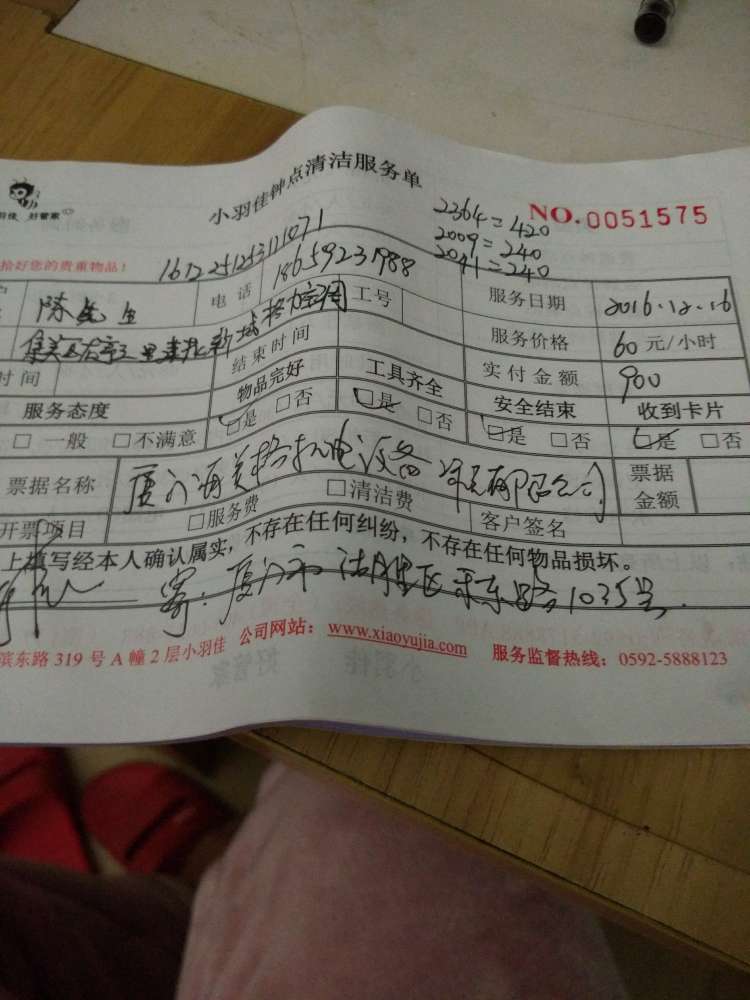 小羽佳钟点清洁服务单
NO.0051575
2364=420
2009=240
2041=240
羽佳 好管家
拾好您的贵重物品！
16122512531111071
陈先生 电话 18659231988 工号 服务日期 2016.12.16
结束时间 服务价格 60元/小时
时间 物品完好 工具齐全 实付金额 900
服务态度 □是 □否 □是 □否 安全结束 收到卡片
□一般 □不满意 □是 □否 □是 □否
票据名称 票据金额
开票项目 □服务费 □清洁费 客户签名
上填写经本人确认属实，不存在任何纠纷，不存在任何物品损坏。
寄：厦门市 1035号
滨东路319号A幢2层小羽佳 公司网站：www.xiaoyujia.com 服务监督热线：0592-5888123